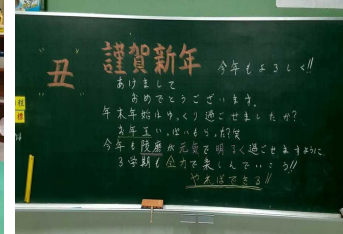 丑
謹賀新年 今年もよろしく!!
あけまして
おめでとうございます。
年末年始はゆっくり過ごせましたか?
お年玉いっぱいもらった?笑
今年も 元気で明るく過ごせますように
3学期も全力で楽しんでいこう!!
やればできる!!
目標